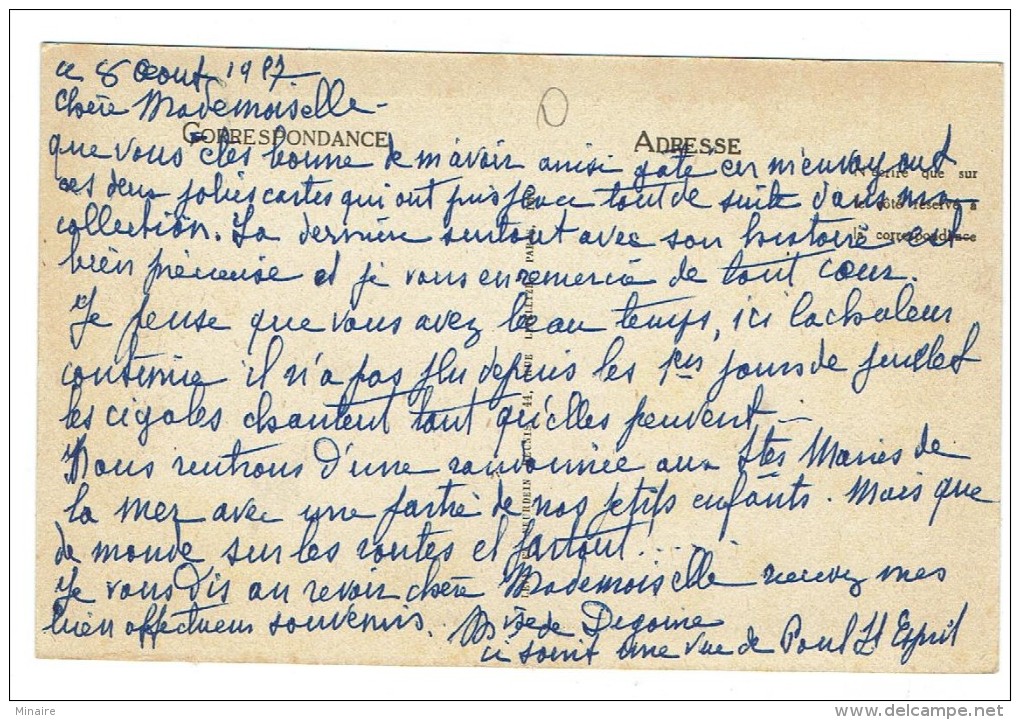 ce 8 Aout 1987.
chère Mademoiselle -
CORRESPONDANCE
ADRESSE
que vous êtes bonne de m'avoir ainsi gâté en m'envoyant
N'écrire que sur
ces deux jolies cartes qui ont pris place tout de suite dans ma
le côté réservé à
collection. La dernière surtout avec son histoire est
la correspondance
bien précieuse et je vous en remercie de tout cœur.
Je pense que vous avez beau temps, ici la chaleur
continue il n'a pas plu depuis les 1ers jours de juillet
les cigales chantent tant qu'elles peuvent. -
Nous rentrons d'une randonnée aux Stes Maries de
la mer avec une partie de nos petits enfants. Mais que
de monde sur les routes et partout! . . .
Je vous dis au revoir chère Mademoiselle recevez mes
bien affectueux souvenirs.
ci joint une vue de Pont St Esprit
Minaire
delcampe.net